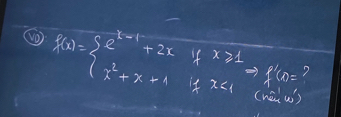 VD: f(x) = { e^{x-1} + 2x if x ≥ 1
x² + x + 1 if x < 1 ⇒ f'(x) = ?
(nếu có)